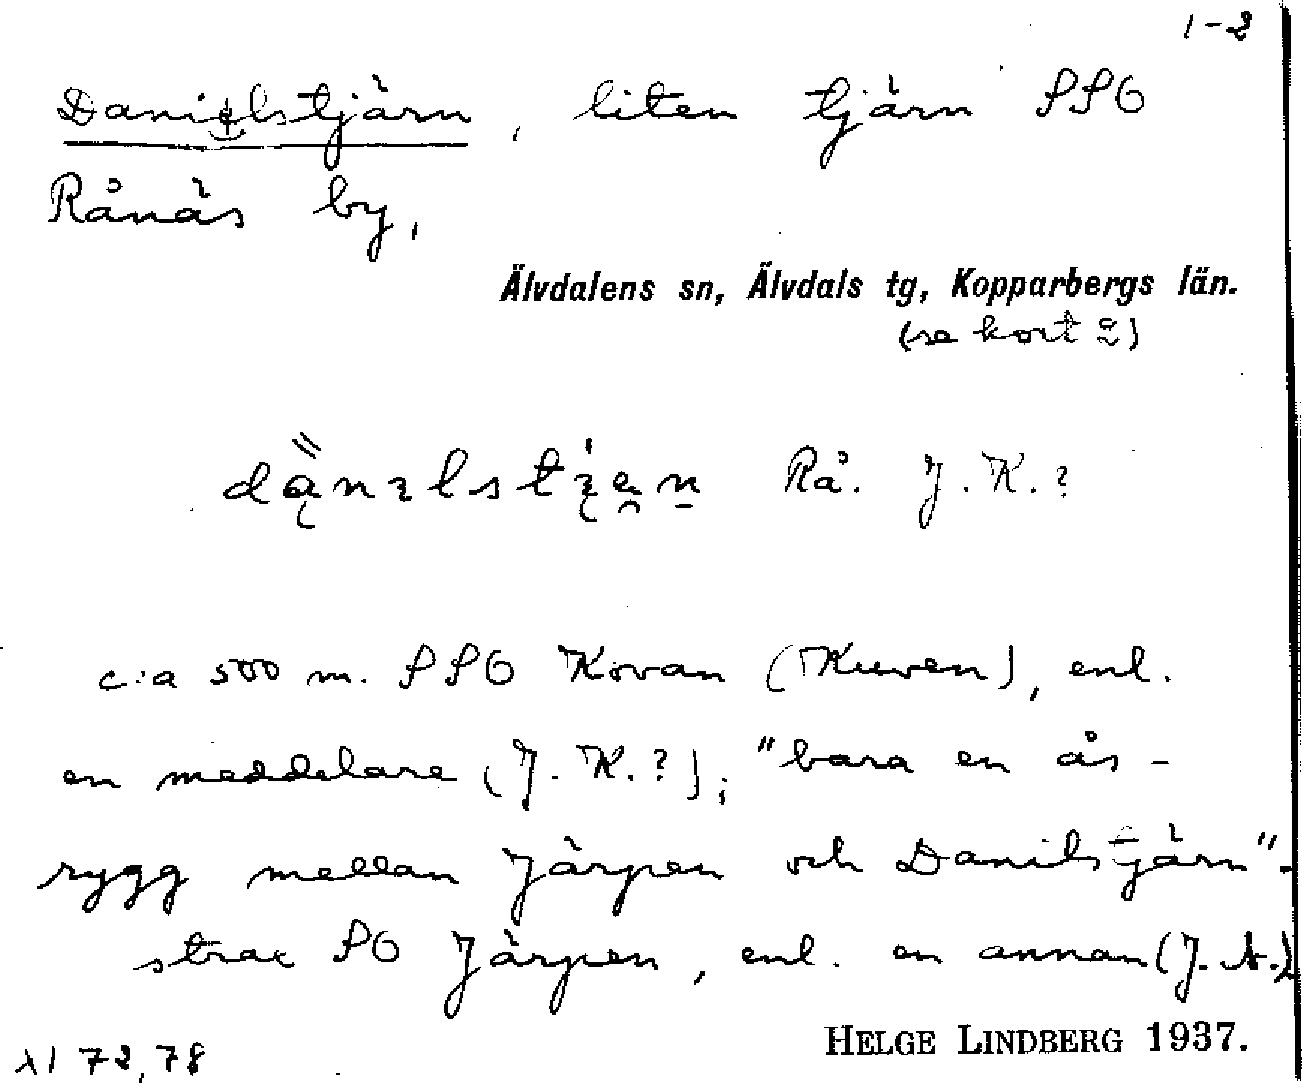 1-2
Danielstjärn, liten tjärn SSO
Rånäs by,
Älvdalens sn, Älvdals tg, Kopparbergs län.
(se kort 2)
Rå. J. K.?
c:a 500 m. SSO Kovan (Kuven), enl.
en meddelare (J. K.?); "bara en ås-
rygg mellan Järpen och Danilstjärn"-
strax SO Järpen, enl. en annan (J. A.)
HELGE LINDBERG 1937.
XI 72, 78